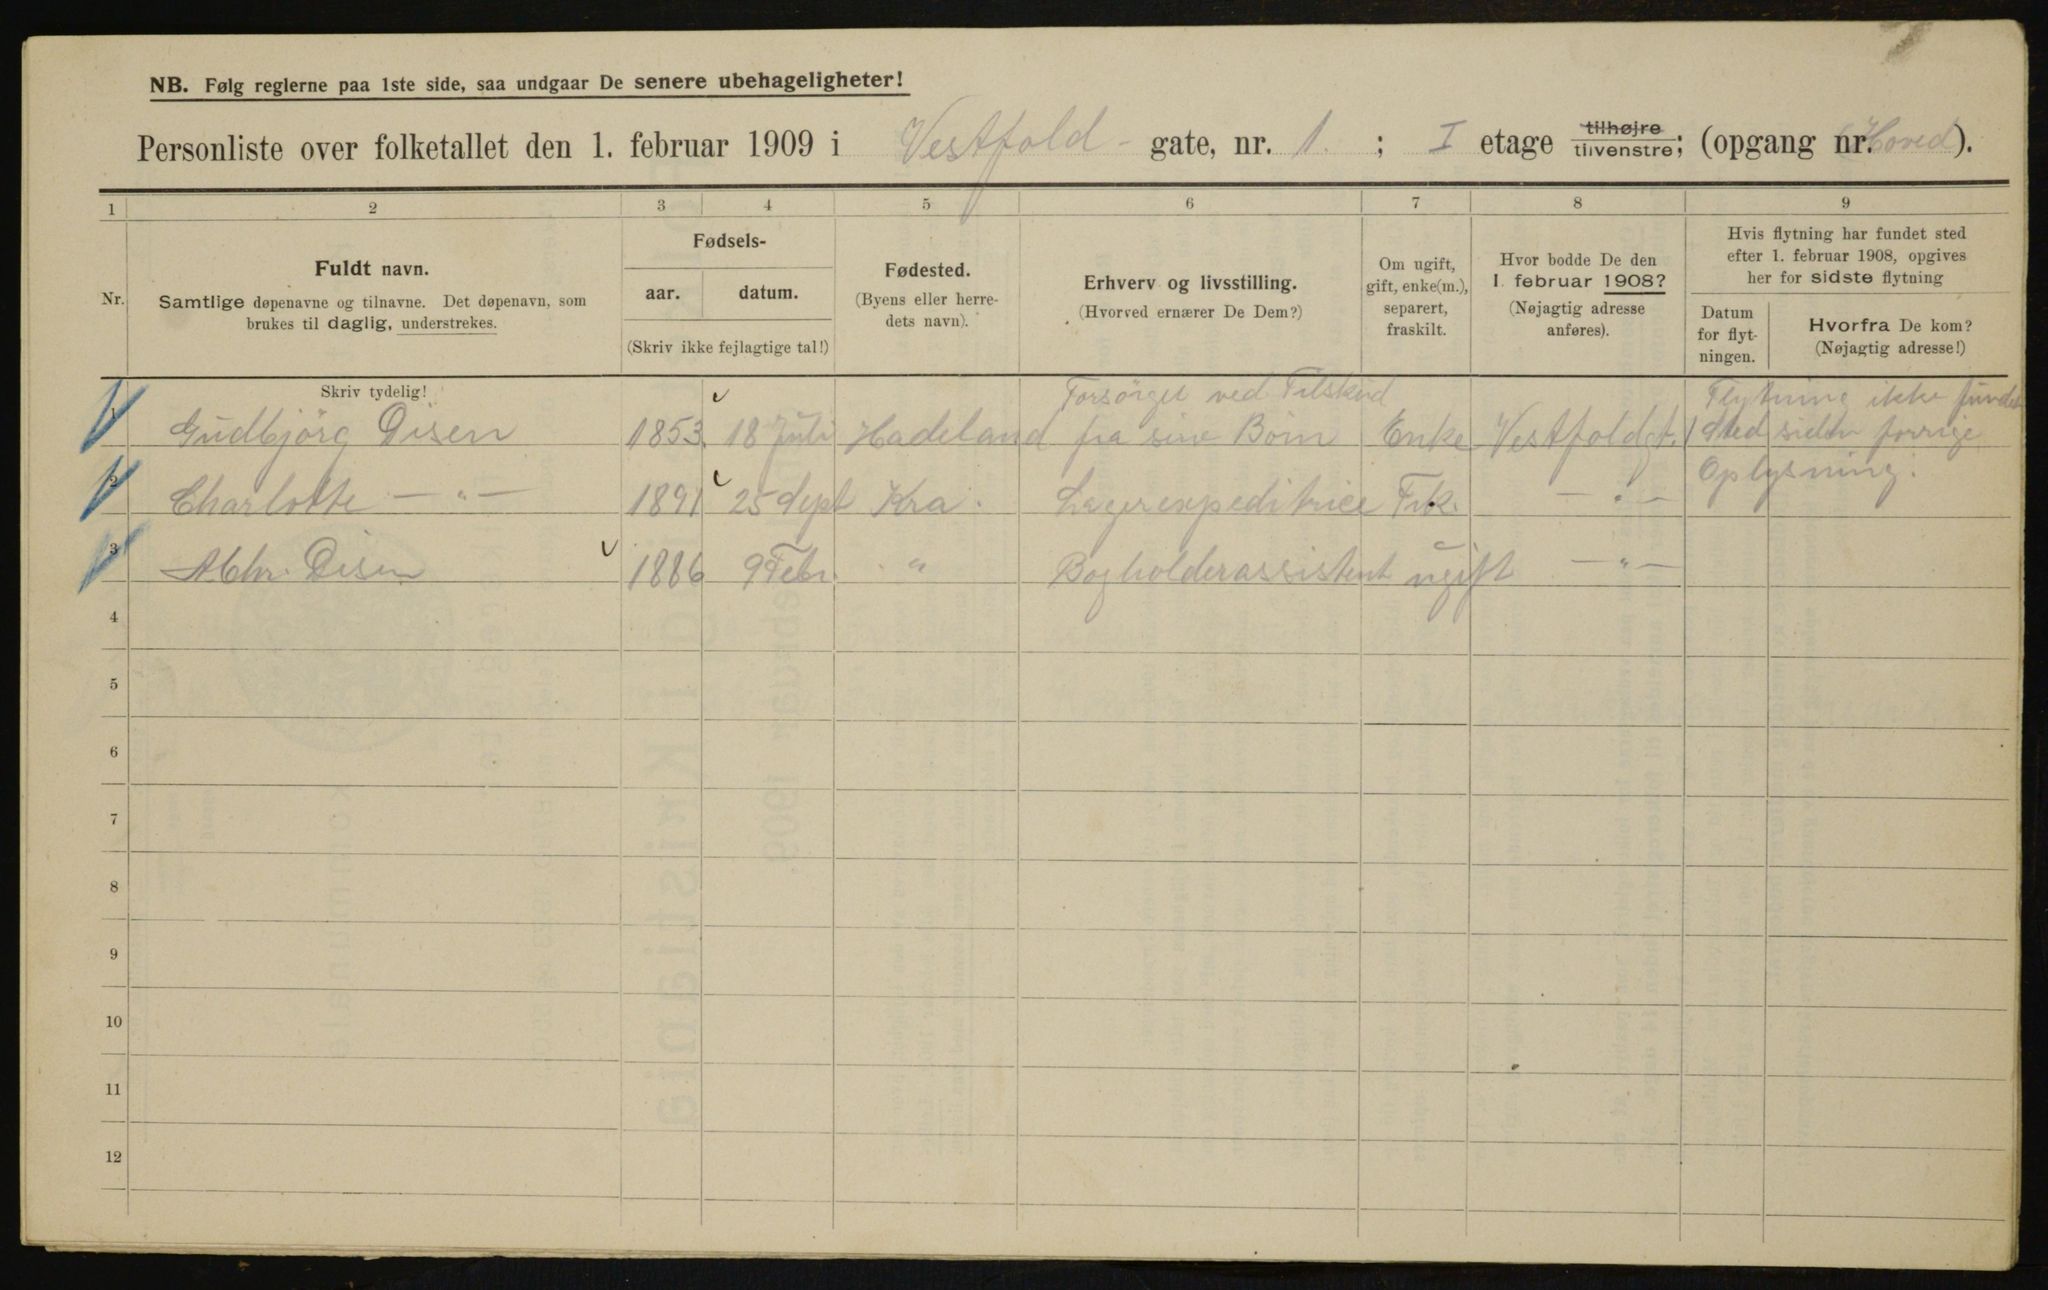 NB. Følg reglerne paa 1ste side, saa undgaar De senere ubehageligheter!
Personliste over folketallet den 1. februar 1909 i Vestfold- gate, nr. 1. ; I etage tilhøjre tilvenstre; (opgang nr. Hoved).
1 2 3 4 5 6 7 8 9
Nr.
Fuldt navn.
Samtlige døpenavne og tilnavne. Det døpenavn, som
brukes til daglig, understrekes.
Fødsels-
aar. datum.
(Skriv ikke fejlagtige tal!)
Fødested.
(Byens eller herre-
dets navn).
Erhverv og livsstilling.
(Hvorved ernærer De Dem?)
Om ugift,
gift, enke(m.),
separert,
fraskilt.
Hvor bodde De den
1. februar 1908?
(Nøjagtig adresse
anføres).
Hvis flytning har fundet sted
efter 1. februar 1908, opgives
her for sidste flytning
Datum
for flyt-
ningen.
Hvorfra De kom?
(Nøjagtig adresse!)
Skriv tydelig!
Forsørget ved Tilskud Flytning ikke fundet
1 Gudbjörg Disen 1853. 18 Juli Hadeland fra sine Börn Enke Vestfoldgt. 1 Sted siden forrige
Oplysning.
2 Charlotte —"— 1891 25 Sept Kra. Lagerexpeditrice Frk. —"—
3 A Chr. Disen 1886 9 Febr. " Bogholderassistent ugift —"—
4
5
6
7
8
9
10
11
12